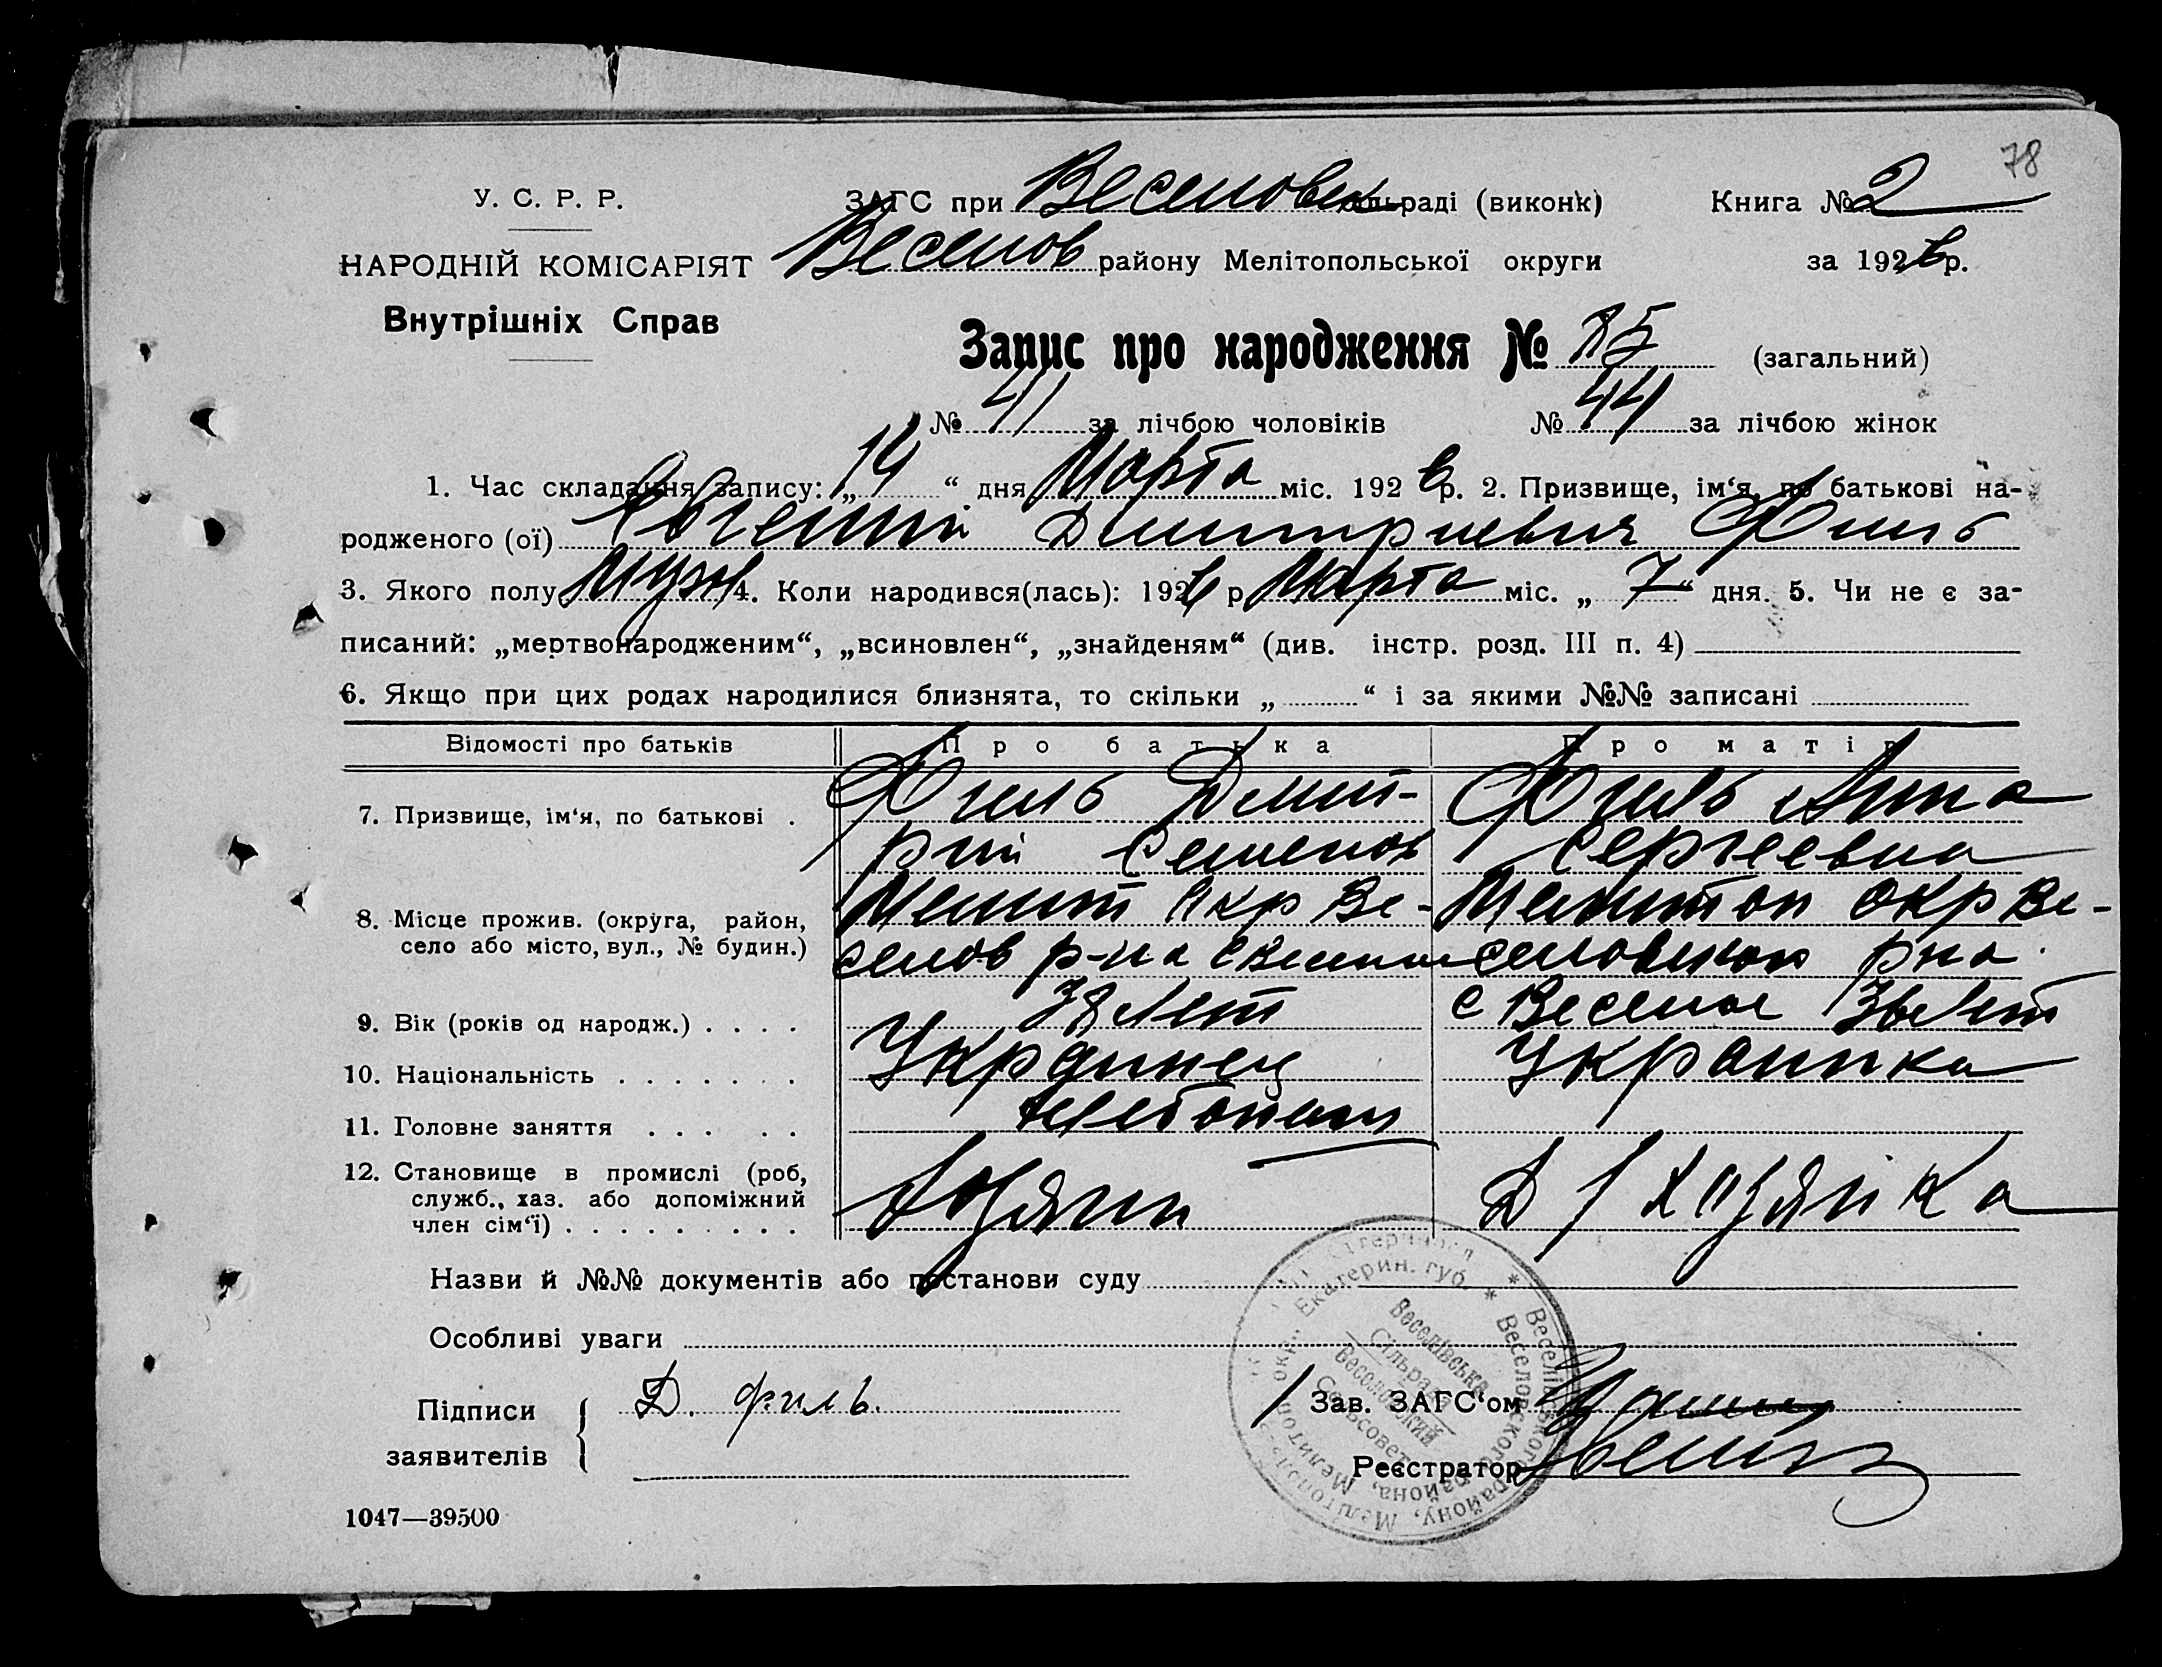 78
У. С. Р. Р.
ЗАГС при Веселовск сільраді (виконк)
Книга № 2
НАРОДНІЙ КОМІСАРІЯТ
Веселов району Мелітопольської округи
за 1926 р.
Внутрішніх Справ
Запис про народження № 85 (загальний)
№ 41 за лічбою чоловіків № 44 за лічбою жінок
1. Час складання запису: „14“ дня Марта міс. 1926 р. 2. Призвище, ім‘я, по батькові на-
родженого (ої) Евгений Дмитриевич Филь
3. Якого полу Муж 4. Коли народився(лась): 1926 р. Марта міс. „7“ дня. 5. Чи не є за-
писаний: „мертвонародженим“, „всиновлен“, „знайденям“ (див. інстр. розд. III п. 4)
6. Якщо при цих родах народилися близнята, то скільки „ “ і за якими №№ записані
Відомості про батьків Про батька Про матір
7. Призвище, ім‘я, по батькові . Филь Дмит- Филь Анна
рий Семенов Сергеевна
8. Місце прожив. (округа, район, Мелит Окр Ве- Мелитоп окр Ве-
село або місто, вул., № будин.) селов р-на с Веселое селовском рна
9. Вік (років од народж.) . . . . 38 лет с Веселое 36 лет
10. Національність . . . . . . . Украинец Украинка
11. Головне заняття . . . . . Хлебопаш
12. Становище в промислі (роб,
служб., хаз. або допоміжний
член сім‘ї) . . . . . . . . . Хозяин Д / хозяйка
Назви й №№ документів або постанови суду
Особливі уваги
Підписи
заявителів
Д. Филь.
Зав. ЗАГС‘ом
Реєстратор
Екатерин. губ. * Веселовского района, Мелитопольск. окр.
Веселівського району, Мелітопольс.
Веселівська
Сільрада
Веселовский
Сельсовет
1047—39500